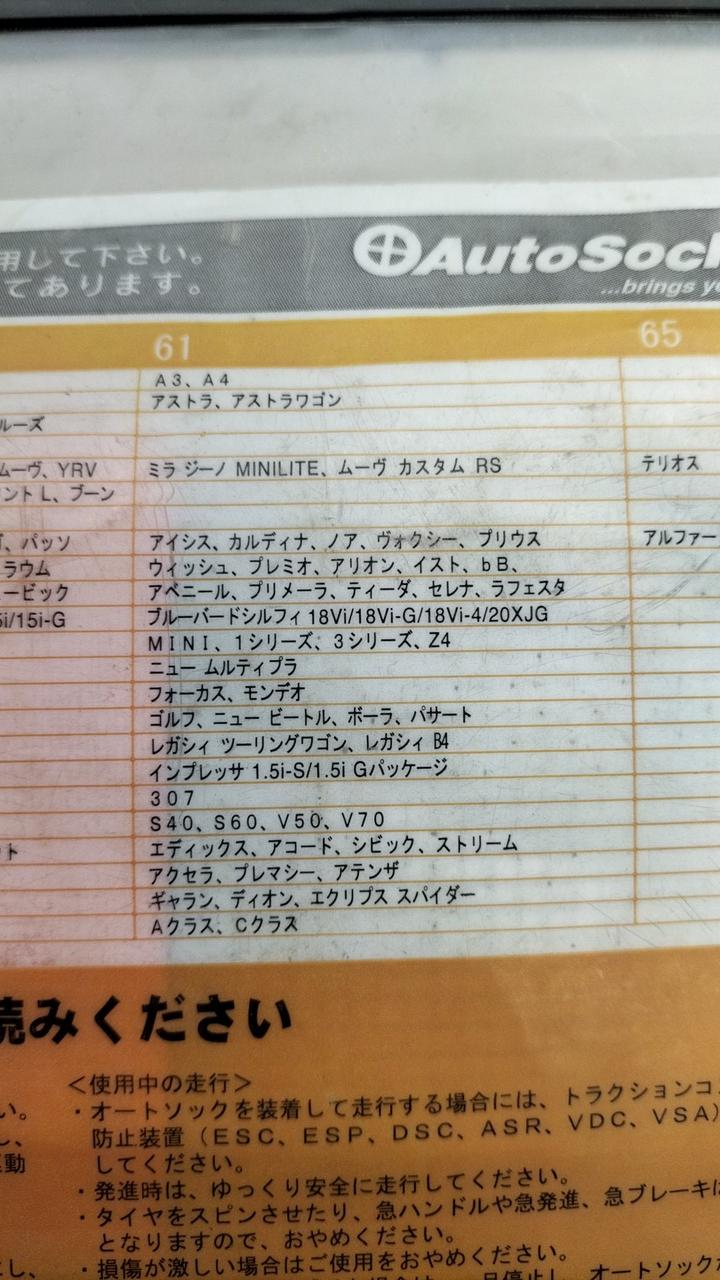 用して下さい。
てあります。
AutoSock
...brings
61 65
A3、A4
アストラ、アストラワゴン
ルーズ
ムーヴ、YRV ミラ ジーノ MINILITE、ムーヴ カスタム RS テリオス
ント L、ブーン
、パッソ アイシス、カルディナ、ノア、ヴォクシー、プリウス アルファー
ラウム ウィッシュ、プレミオ、アリオン、イスト、bB、
ービック アベニール、プリメーラ、ティーダ、セレナ、ラフェスタ
5i/15i-G ブルーバードシルフィ 18Vi/18Vi-G/18Vi-4/20XJG
MINI、1シリーズ、3シリーズ、Z4
ニュー ムルティプラ
フォーカス、モンデオ
ゴルフ、ニュー ビートル、ボーラ、パサート
レガシィ ツーリングワゴン、レガシィ B4
インプレッサ 1.5i-S/1.5i Gパッケージ
307
S40、S60、V50、V70
ト エディックス、アコード、シビック、ストリーム
アクセラ、プレマシー、アテンザ
ギャラン、ディオン、エクリプス スパイダー
Aクラス、Cクラス
読みください
＜使用中の走行＞
い。 ・オートソックを装着して走行する場合には、トラクションコ
し、 防止装置（ESC、ESP、DSC、ASR、VDC、VSA）
動 してください。
・発進時は、ゆっくり安全に走行してください。
・タイヤをスピンさせたり、急ハンドルや急発進、急ブレーキは
となりますので、おやめください。
こし、 ・損傷が激しい場合はご使用をおやめください。
オートソックが